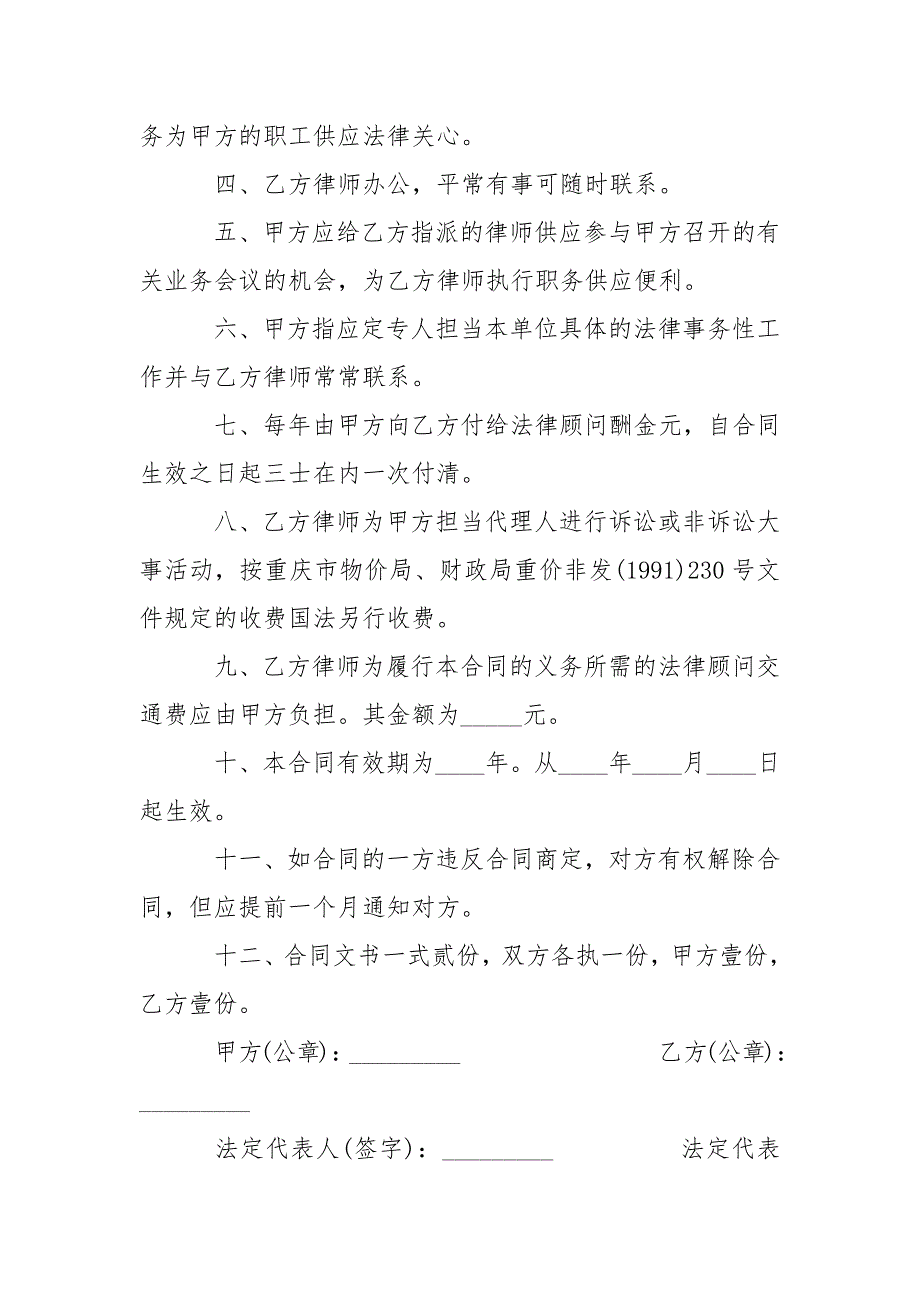 务为甲方的职工供应法律关心。
四、乙方律师办公，平常有事可随时联系。
五、甲方应给乙方指派的律师供应参与甲方召开的有
关业务会议的机会，为乙方律师执行职务供应便利。
六、甲方指应定专人担当本单位具体的法律事务性工
作并与乙方律师常常联系。
七、每年由甲方向乙方付给法律顾问酬金元，自合同
生效之日起三士在内一次付清。
八、乙方律师为甲方担当代理人进行诉讼或非诉讼大
事活动，按重庆市物价局、财政局重价非发(1991)230 号文
件规定的收费国法另行收费。
九、乙方律师为履行本合同的义务所需的法律顾问交
通费应由甲方负担。其金额为_____元。
十、本合同有效期为____年。从____年____月____日
起生效。
十一、如合同的一方违反合同商定，对方有权解除合
同，但应提前一个月通知对方。
十二、合同文书一式贰份，双方各执一份，甲方壹份，
乙方壹份。
甲方(公章)：_________ 乙方(公章)：
_________
法定代表人(签字)：_________ 法定代表